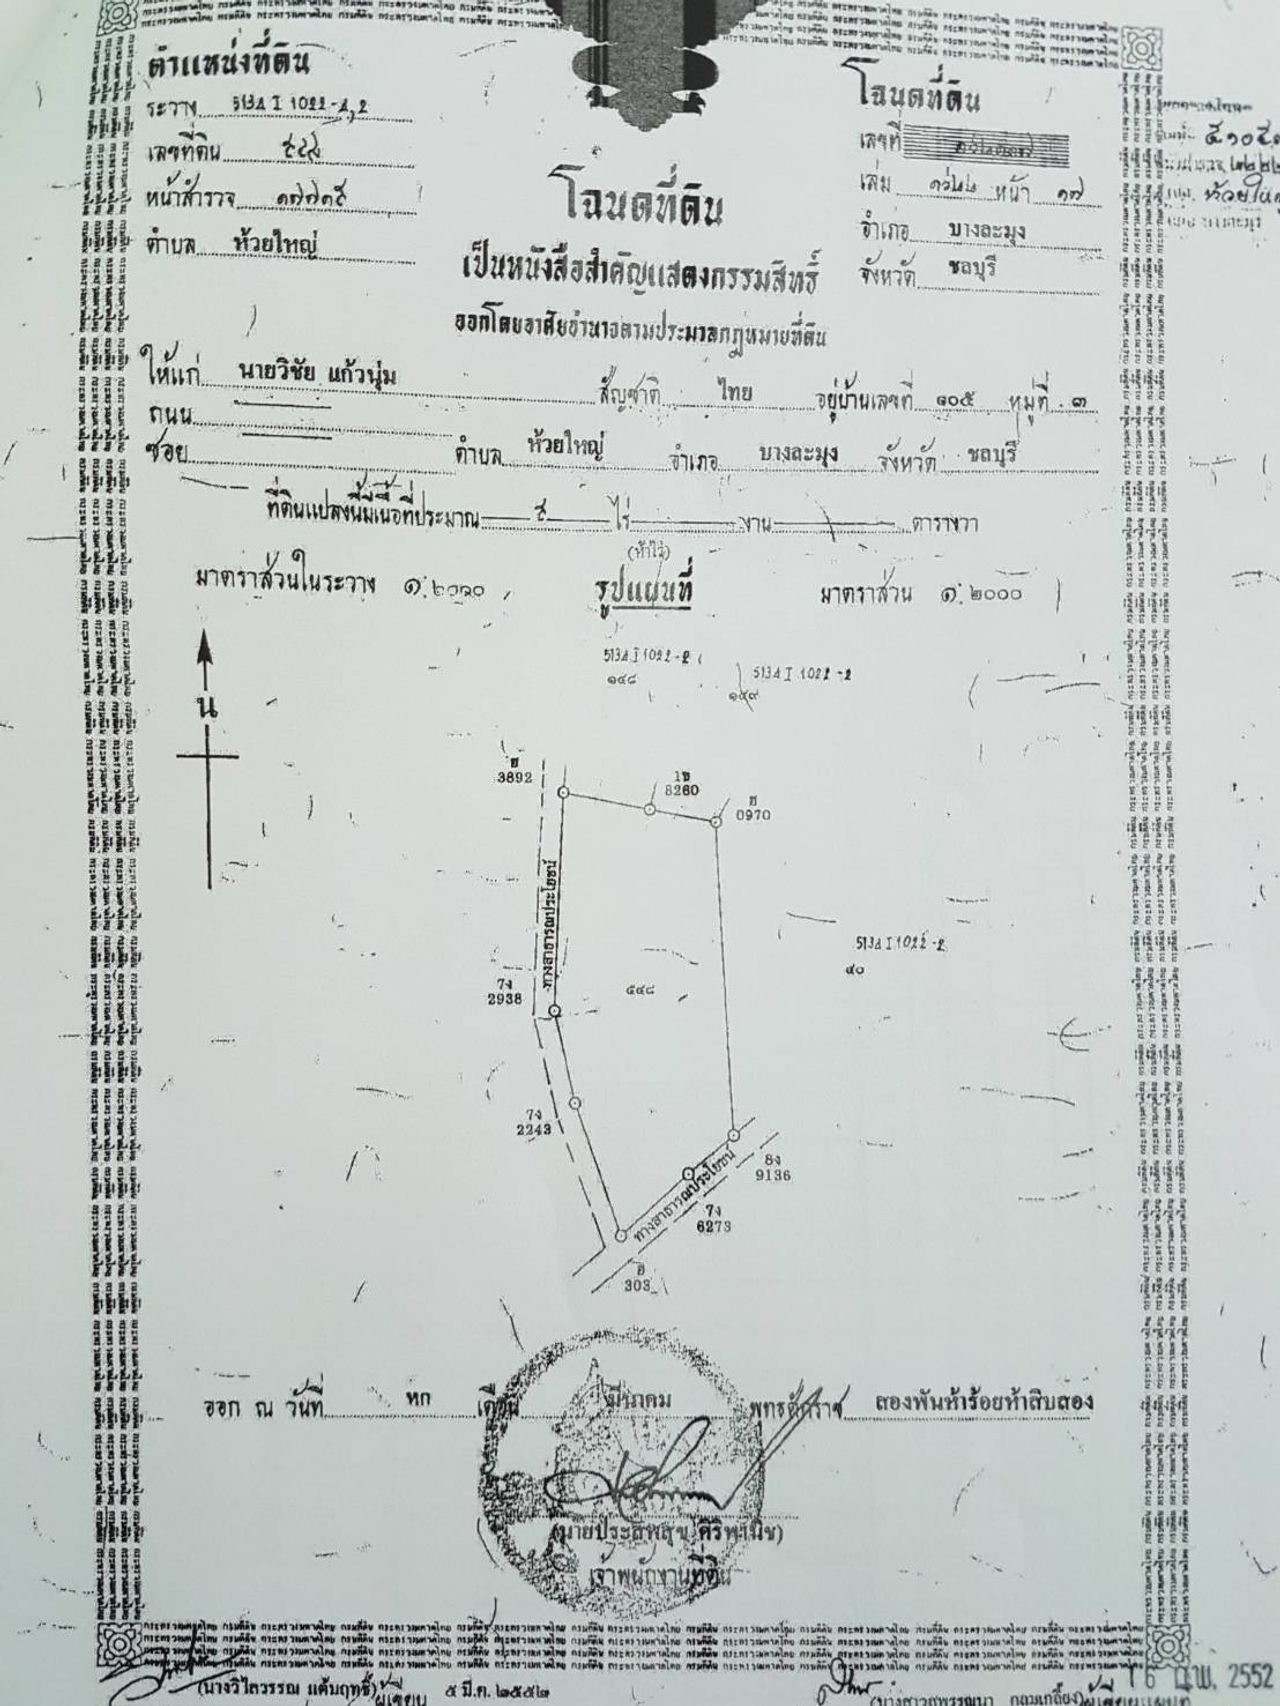 ตำแหน่งที่ดิน
ระวาง 5134 I 1022-4,2
เลขที่ดิน ๕๔๘
หน้าสำรวจ
ตำบล ห้วยใหญ่
โฉนดที่ดิน
เลขที่
เล่ม หน้า ๑๗
อำเภอ บางละมุง
จังหวัด ชลบุรี
ห้วยใหญ่
โฉนดที่ดิน
เป็นหนังสือสำคัญแสดงกรรมสิทธิ์
ออกโดยอาศัยอำนาจตามประมวลกฎหมายที่ดิน
ให้แก่ นายวิชัย แก้วนุ่ม สัญชาติ ไทย อยู่บ้านเลขที่ ๑๐๕ หมู่ที่ ๓
ถนน
ซอย ตำบล ห้วยใหญ่ อำเภอ บางละมุง จังหวัด ชลบุรี
ที่ดินแปลงนี้มีเนื้อที่ประมาณ ๕ ไร่ งาน ตารางวา
(ห้าไร่)
มาตราส่วนในระวาง ๑:๒๐๐๐ รูปแผนที่ มาตราส่วน ๑:๒๐๐๐
น
5134 I 1022-2
๑๔๘
5134 I 1022-2
๑๔๙
ฮ
3892
1ข
8260
ฮ
0970
ทางสาธารณประโยชน์
7ง
2938
๕๔๘
5134 I 1022-2
๔๐
7ง
2243
8ง
9136
ทางสาธารณประโยชน์
7ง
6273
ฮ
303
ออก ณ วันที่ หก เดือน มีนาคม พุทธศักราช สองพันห้าร้อยห้าสิบสอง
(นายประสพสุข ศิริพานิช)
เจ้าพนักงานที่ดิน
(นางวิไลวรรณ แต้มฤทธิ์) ผู้เขียน ๕ มี.ค. ๒๕๕๒
16 ก.พ. 2552